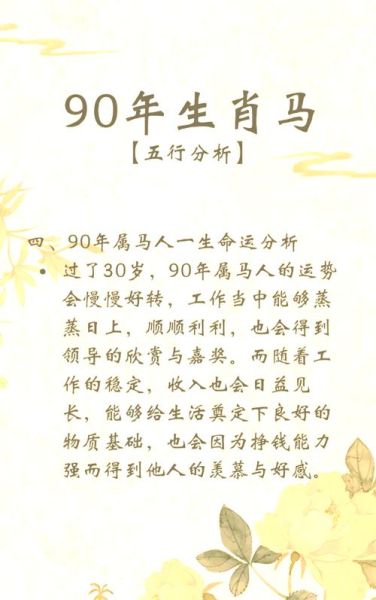 90年生肖马
【五行分析】
四、90年属马人一生命运分析
• 过了30岁，90年属马人的运势
会慢慢好转，工作当中能够蒸
蒸日上，顺顺利利，也会得到
领导的欣赏与嘉奖。而随着工
作的稳定，收入也会日益见
长，能够给生活奠定下良好的
物质基础，也会因为挣钱能力
强而得到他人的羡慕与好感。